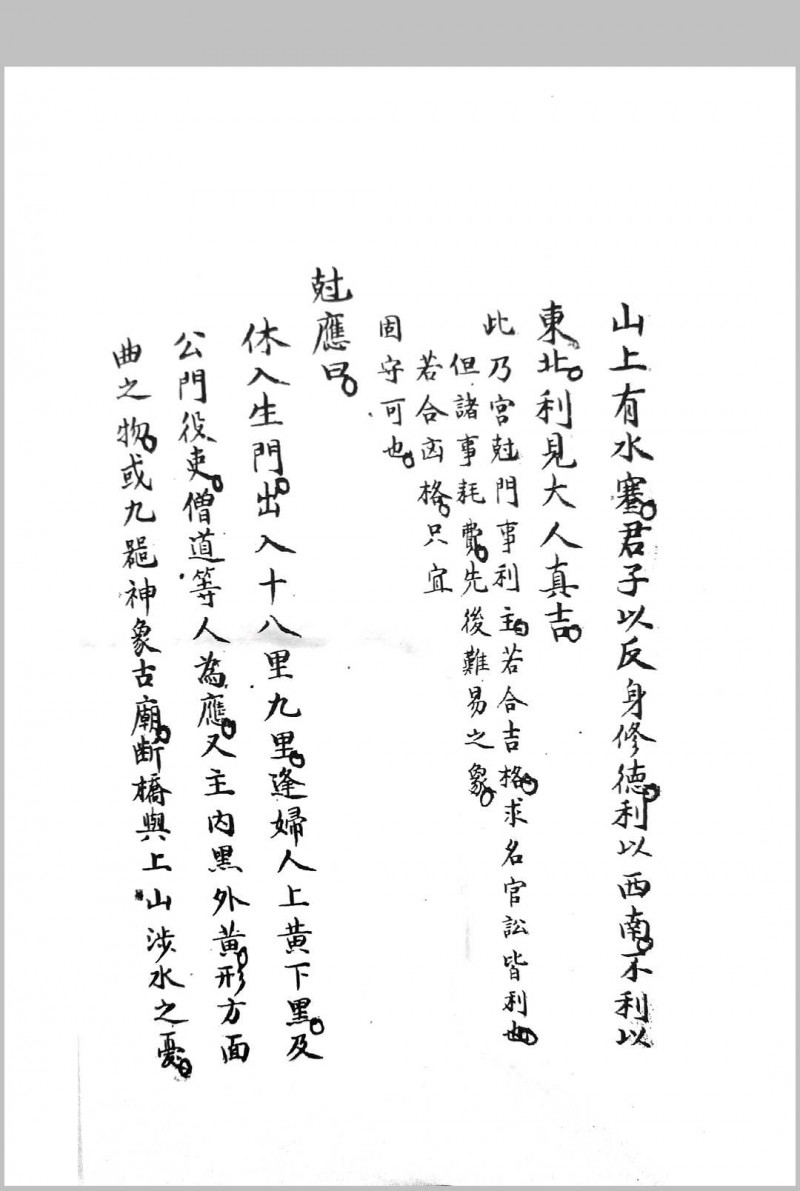 山上有水蹇。君子以反身修德。利以西南。不利以
東北。利見大人真吉。
此乃宮尅門事利主。若合吉格。求名官訟皆利也。
但諸事耗費。先後難易之象。
若合凶格。只宜
固守可也。
尅應曰。
休入生門。出入十八里九里。逢婦人上黃下黑。及
公門役吏。僧道等人為應。又主內黑外黃。形方面
曲之物。或九神象古廟。断橋與上山涉水之憂。